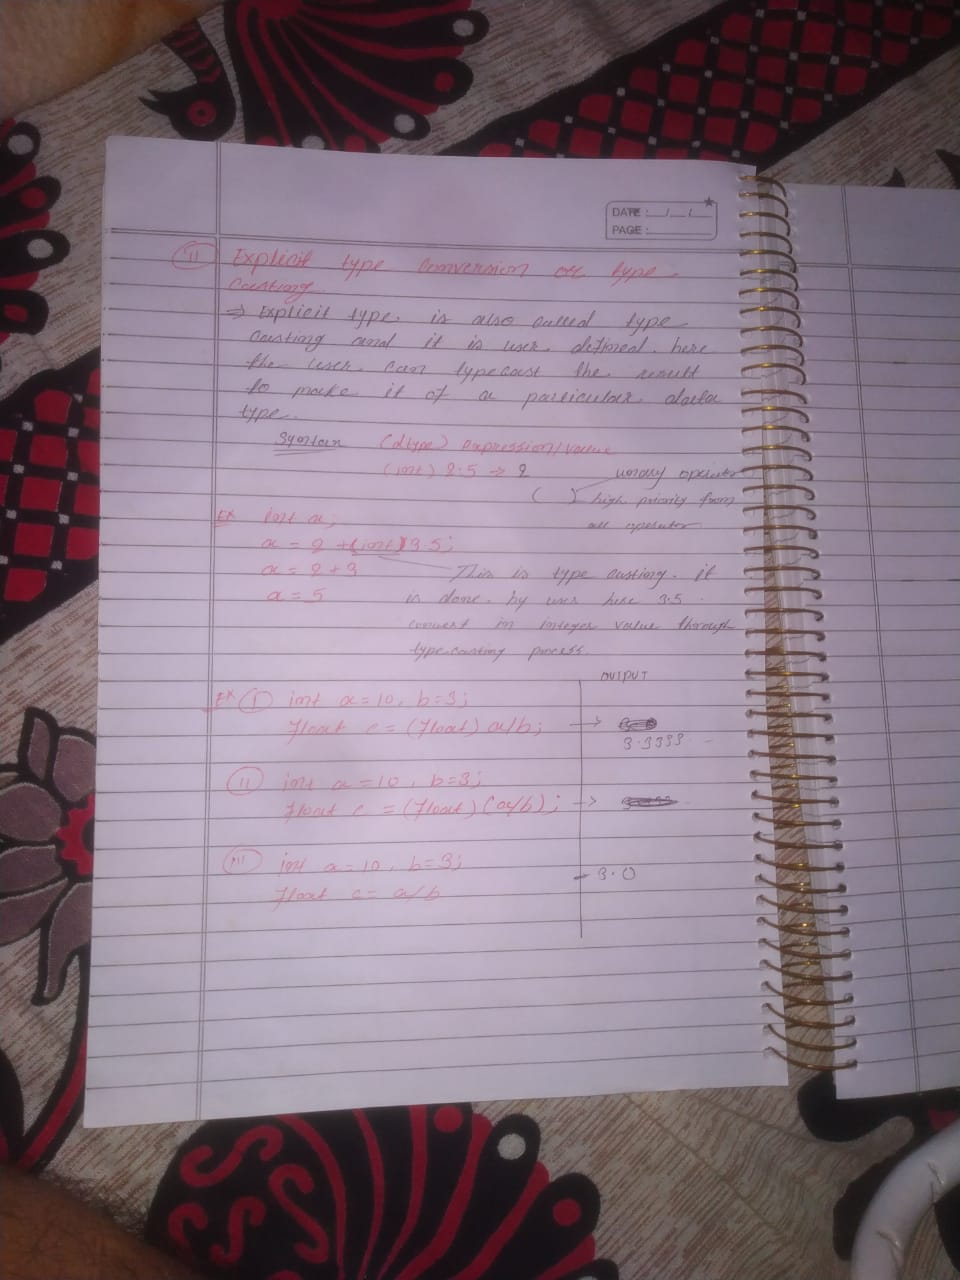 DATE: __/__/__
PAGE:
II Explicit type conversion or type
casting.
⇒ Explicit type. is also called type
casting and it is user defined. here
the user can typecast the result
to make it of a particular data
type.
Syntax (dtype) expression/value
(int) 2.5 → 2 unary operator
( ) high priority from
all operator
Ex int a;
a = 2 + (int) 3.5;
a = 2 + 3 This is type casting. it
a = 5 is done by user here 3.5
convert in integer value through
type casting process.
OUTPUT
Ex I int a = 10, b = 3;
float c = (float) a/b; →
3.3333
II int a = 10, b = 3;
float c = (float) (a/b); →
III int a = 10, b = 3; - 3.0
float c = a/b